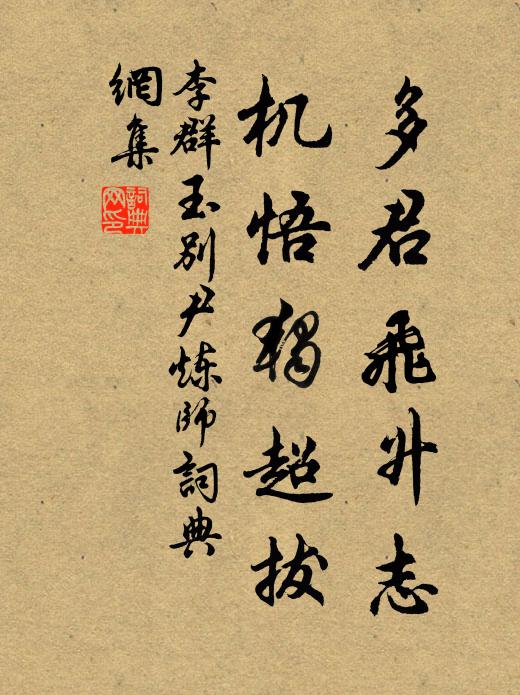 多君飛升志
机悟獨超拔
李群玉别尹炼師詞典
網集
詞典網印